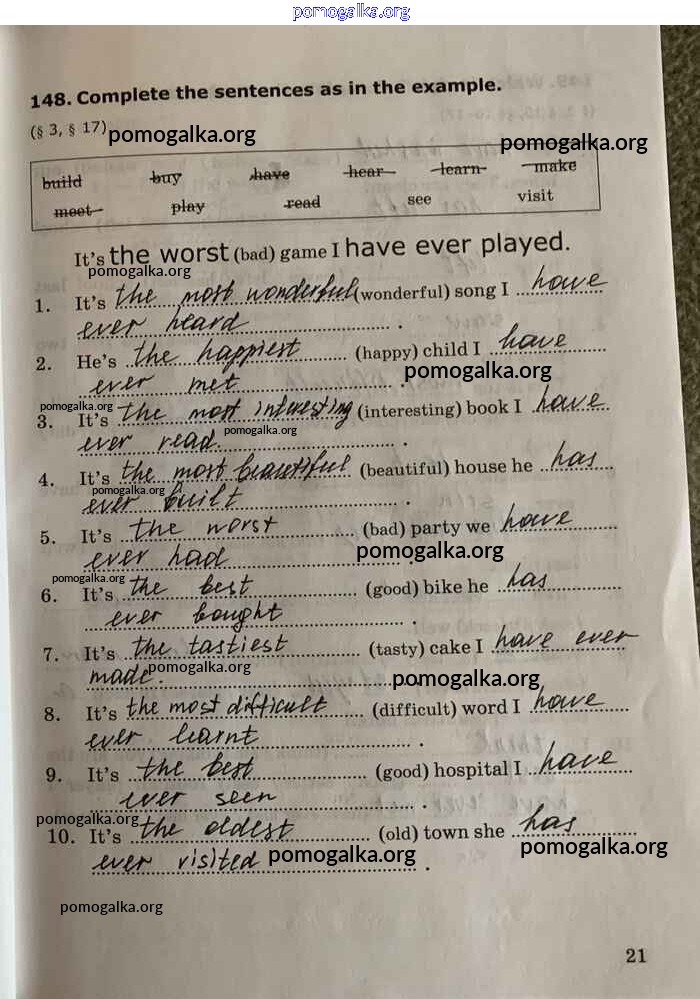 pomogalka.org
148. Complete the sentences as in the example.
(§ 3, § 17) pomogalka.org
pomogalka.org
build buy have hear learn make
meet play read see visit
It's the worst (bad) game I have ever played.
pomogalka.org
1. It's the most wonderful (wonderful) song I have
ever heard.
2. He's the happiest (happy) child I have
ever met.
pomogalka.org
pomogalka.org
3. It's the most interesting (interesting) book I have
pomogalka.org
ever read.
4. It's the most beautiful (beautiful) house he has
pomogalka.org
ever built.
5. It's the worst (bad) party we have
ever had.
pomogalka.org
pomogalka.org
6. It's the best (good) bike he has
ever bought.
7. It's the tastiest (tasty) cake I have ever
made.
pomogalka.org
pomogalka.org
8. It's the most difficult (difficult) word I have
ever learnt.
9. It's the best (good) hospital I have
ever seen.
pomogalka.org
10. It's the oldest (old) town she has
pomogalka.org
ever visited.
pomogalka.org
pomogalka.org
21